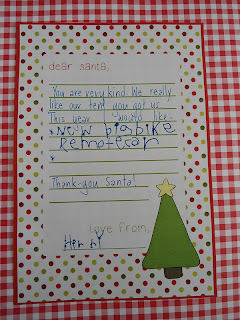 dear santa,
You are very kind. We really
like our tent you got us
This year I would like.
New big bike
Remote car
Thank-you Santa!
Love From,
Henry